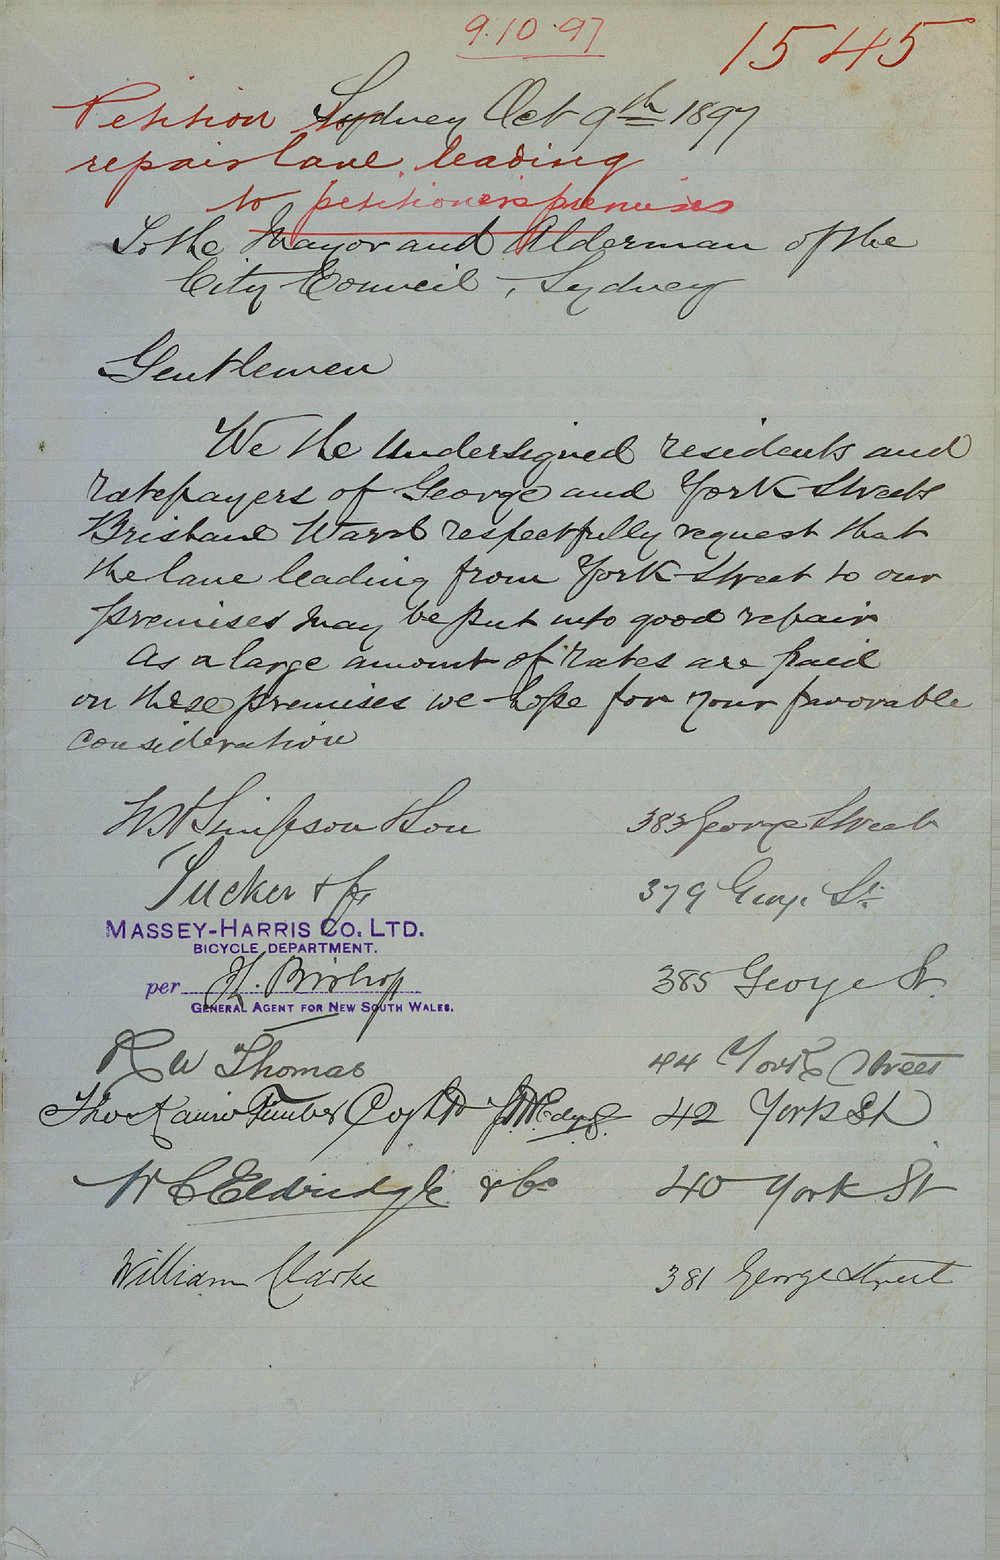 9.10.97
1545
Petition
Sydney Oct 9th 1897
repair lane leading
to petitioners premises
To the Mayor and Alderman of the
City Council, Sydney
Gentlemen
We the Undersigned residents and
ratepayers of George and York Streets
Brisbane Ward respectfully request that
the lane leading from York Street to our
premises may be put into good repair
As a large amount of rates are paid
on these premises we hope for your favorable
consideration
W H Simpson & Son 383 George Street
Tucker & Co 379 George St.
MASSEY-HARRIS CO. LTD.
BICYCLE DEPARTMENT.
per H. Bishop 385 George St.
GENERAL AGENT FOR NEW SOUTH WALES.
R W Thomas 44 York Street
The Kauri Timber Coy Ltd 42 York St
W C Eldridge & Co 40 York St
William Clarke 381 George Street